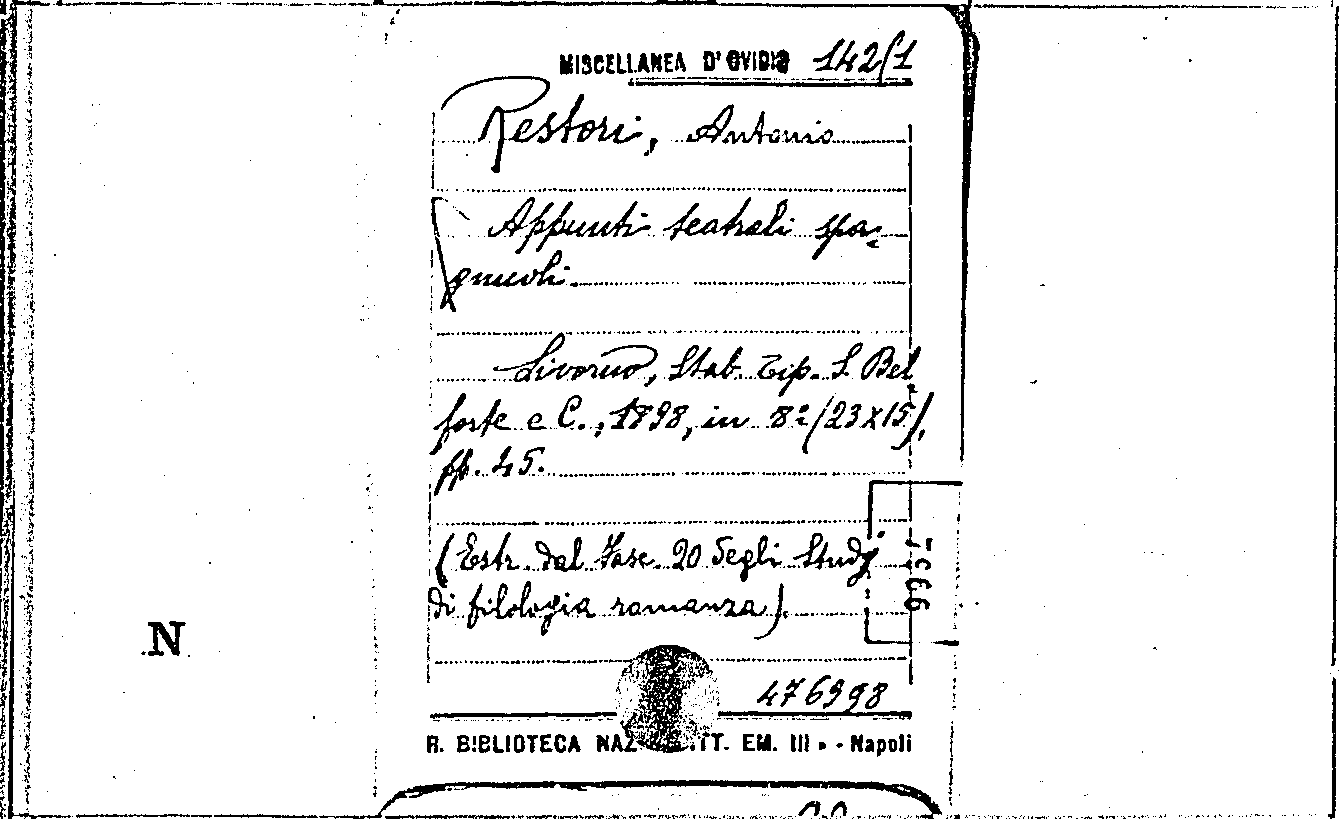 MISCELLANEA D'OVIDIO 142/1
Restori, Antonio
Appunti teatrali spa-
gnuoli.
Livorno, Stab. Tip. S. Bel-
forte e C., 1898, in 8º (23x15),
pp. 45.
(Estr. dal Fasc. 20 degli Studj
di filologia romanza).
N
476998
R. BIBLIOTECA NAZ TT. EM. III » - Napoli